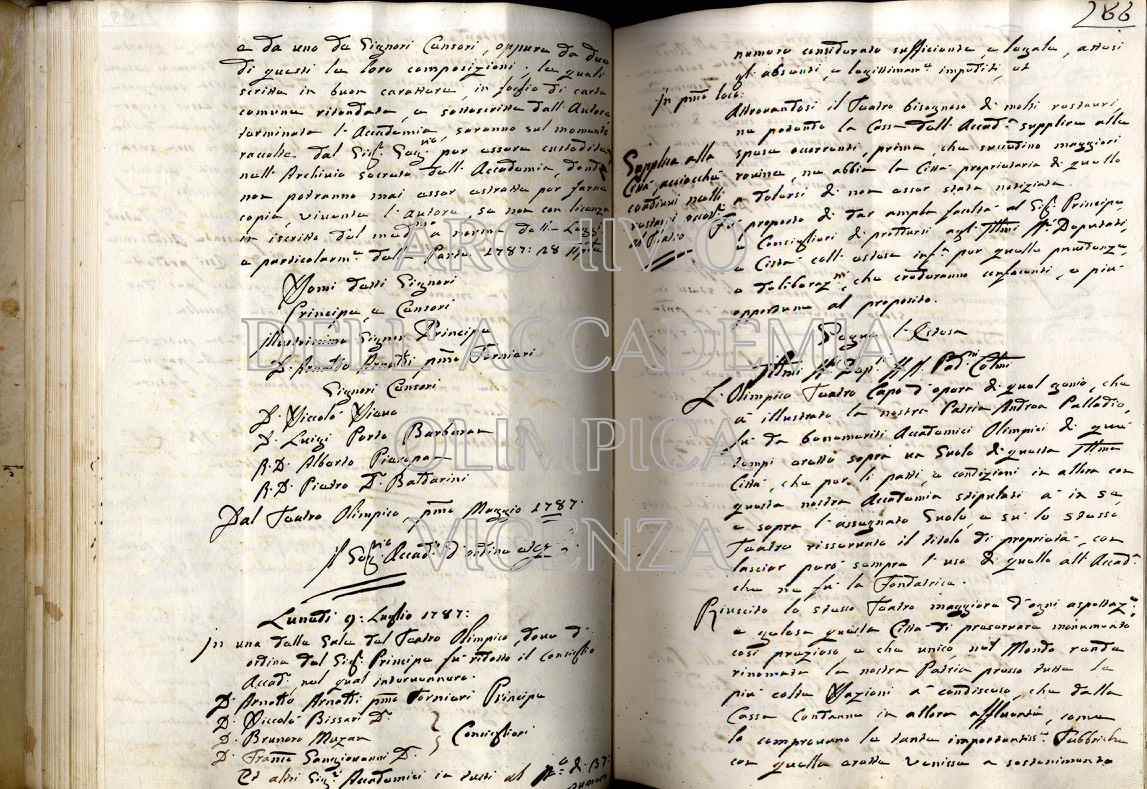 e da uno de Signori Censori, oppure da due
di questi le loro composizioni; le quali
scritte in buon carattere, in foglio di carta
comune ritondata, e sottoscritte dall'Autore
terminata l'Accademia, saranno sul momento
raccolte dal Sig.r Seg.rio per essere custodite
nell'Archivio secreto dell'Accademia, donde
non potranno mai esser estratte per farne
copia, vivente l'Autore, se non con licenza
in iscritto del med.mo a norma delle Leggi
e particolarm.e della Parte 1787: 28
Nomi delli Signori
Principe, e Censori
Illustrissimo Signor Principe
D. Arnaldo Arnaldi pmo Tornieri
Signori Censori
D. Niccolò Vicino
D. Luigi Porto Barbaran
R. D. Alberto Piacapan
R. D. Pietro D.r Baldarini
Dal Teatro Olimpico pmo Maggio 1787.
Il Seg.rio Accad.o d'ordine
Lunedì 9: Luglio 1787:
In una delle Sale del Teatro Olimpico, dove d'
ordine del Sig.r Principe fu ridotto il Consiglio
Accad.o nel qual intervennero.
D. Arnaldo Arnaldi pmo Tornieri Principe
D. Niccolò Bissari D.r
D. Brunoro Muzan
D. Franco Sangiovanni D.r
Consiglieri
Et altri Sig.ri Accademici in tutti al n.o di 37:
numero
266
numero considerato sufficiente, e legale, attesi
gli absenti, e legittimam.e impediti, et
In pmo loco:
Attrovandosi il Teatro bisognoso di molti restauri,
ne potendo la Cassa dell'Accad.a supplire alle
spese occorrenti, prima, che succedino maggiori
rovine, ne abbia la Città proprietaria di quello
a dolersi di non esser stata notiziata.
Supplica alla
Città acciocchè
condiuvi nelli
restauri
al Teatro
Fù proposto di dar ampla facoltà al Sig.r Principe
e Consiglieri di prodursi agl'Illmi SS.ri Deputati,
e Città coll'estesa inf.a per quelle providenze,
e deliberaz.ni, che crederanno confacenti, e più
opportune al proposito.
Segue l'Estesa
Illmi SS.ri Dep.i SS.ri Pad.ni Colmi
L'Olimpico Teatro Capo d'opera di quel genio, che
à illustrato la nostra Patria Andrea Palladio,
fu da benemeriti Accademici Olimpici di quei
tempi eretto sopra un Suolo di questa Illma
Città, che per li patti, e condizioni in allora con
questa nostra Accademia stipulati à in se
e sopra l'assegnato Suolo, e sù lo stesso
Teatro risservato il titolo di proprietà, con
lasciar però sempre l'uso di quello all'Accad.a
che ne fu la Fondatrice.
Riuscito lo stesso Teatro maggiore d'ogni aspettaz.e
e gelosa questa Città di preservare monumento
così prezioso e che unico nel Mondo rende
rinomata la nostra Patria presso tutte le
più colte Nazioni à condisceso, che dalla
Cassa Contanne in allora affluente, come
lo comprovano le tante importantis.e Fabbriche
con quelle eretta venisse a sostenimento
ARCHIVIO
DELL'ACCADEMIA
OLIMPICA
VICENZA